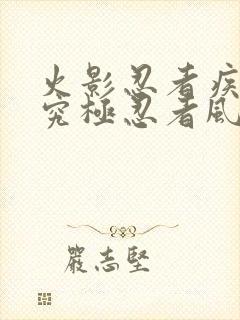 火影忍者疾
究極忍者風
嚴志堅